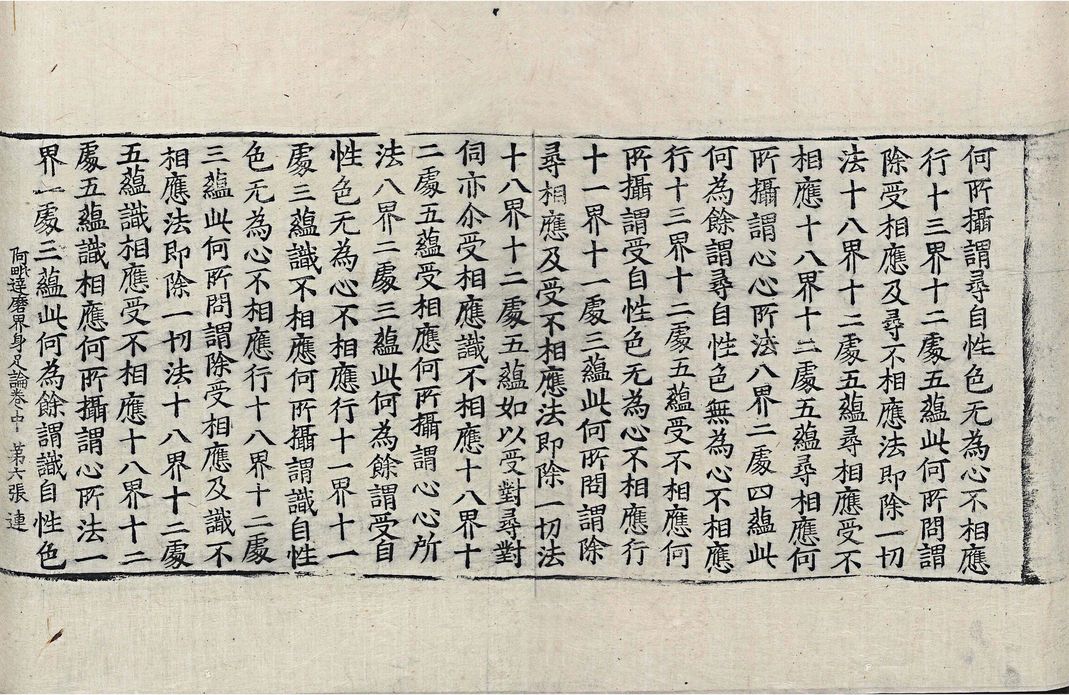 何所攝謂尋自性色无為心不相應
行十三界十二處五蘊此何所問謂
除受相應及尋不相應法即除一切
法十八界十二處五蘊尋相應受不
相應十八界十二處五蘊尋相應何
所攝謂心心所法八界二處四蘊此
何為餘謂尋自性色無為心不相應
行十三界十二處五蘊受不相應何
所攝謂受自性色无為心不相應行
十一界十一處三蘊此何所問謂除
尋相應及受不相應法即除一切法
十八界十二處五蘊如以受對尋對
伺亦尒受相應識不相應十八界十
二處五蘊受相應何所攝謂心心所
法八界二處三蘊此何為餘謂受自
性色无為心不相應行十一界十一
處三蘊識不相應何所攝謂識自性
色无為心不相應行十八界十二處
三蘊此何所問謂除受相應及識不
相應法即除一切法十八界十二處
五蘊識相應受不相應十八界十二
處五蘊識相應何所攝謂心所法一
界一處三蘊此何為餘謂識自性色
阿毗達磨界身足論卷中 第六張 連